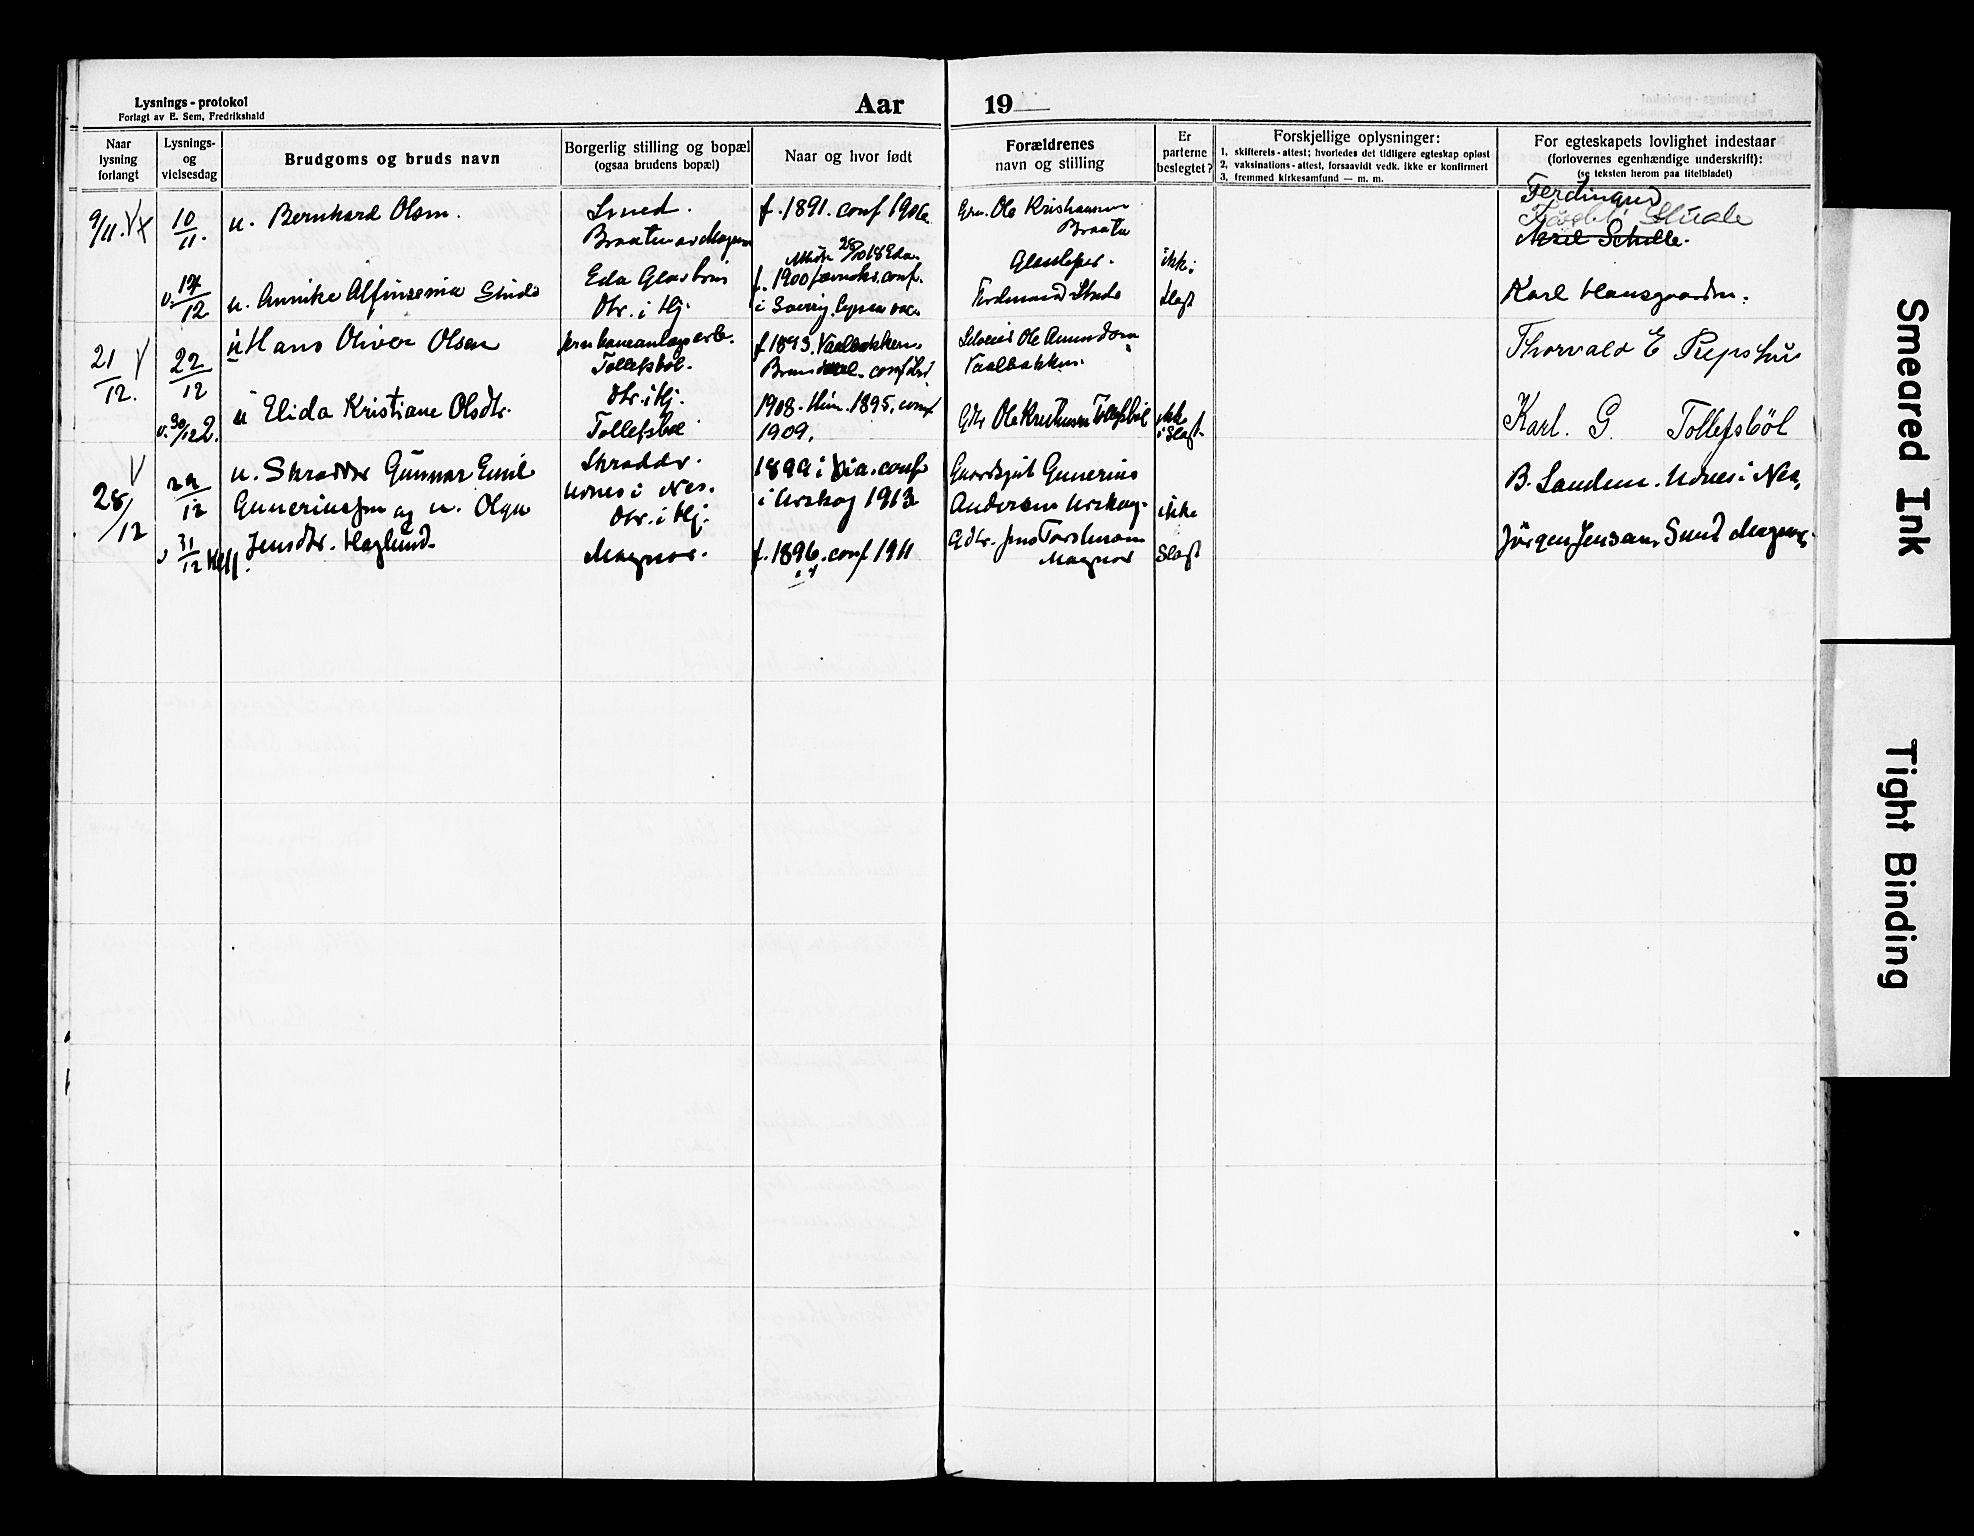 Lysnings-protokol
Forlagt av E. Sem, Fredrikshald
Aar 19
Naar lysning forlangt
Lysnings- og vielsesdag
Brudgoms og bruds navn
Borgerlig stilling og bopæl
(ogsaa brudens bopæl)
Naar og hvor født
Forældrenes
navn og stilling
Er parterne beslegtet?
Forskjellige oplysninger:
1, skifterets-attest; hvorledes det tidligere egteskap opløst
2, vaksinations-attest, forsaavidt vedk. ikke er konfirmert
3, fremmed kirkesamfund — m. m.
For egteskapets lovlighet indestaar
(forlovernes egenhændige underskrift):
(se teksten herom paa titelbladet)
9/11.
10/11.
u. Bernhard Olsen.
Smed.
Braaten av Magnor
f. 1891. conf 1906
Ole Kristiansen
Braaten
Ferdinand
v. 17/12
u. Annike Alfinsenia
Eda Glasbruk
Dtr. i Hj.
f. 1900
ikke i
slegt
Karl Hansgaarden.
21/12.
22/12
u Hans Oliver Olsen
Jernbaneanlægsarb.
Tollefsböl.
f. 1893. Vaalbakken,
conf
Ole Amundsen
Vaalbakken.
Thorvald E
v. 30/12
u Elida Kristiane Olsdtr.
Dtr. i Hj.
Tollefsböl
1908. Hun. 1895, conf
1909.
Ole Kristiansen Tollefsböl
ikke
i slegt.
Karl. G. Tollefsböl
28/12
29/12
u. Skrædder Gunnar Emil
Gunneriussen og u. Olga
Skrædder.
Udnes i Nes.
Dtr. i Hj.
1899 i conf
i Urskog 1913
Gunerius
Andersen Urskog.
ikke
B. Sanden. Udnes i Nes,
v 31/12
Jensdtr. Haglund.
Magnor.
f. 1896. conf 1911
Gdbr. Jens Torstensen
Magnor
slegt
Jörgen Jensen, Sund Magnor.
Smeared Ink
Tight Binding